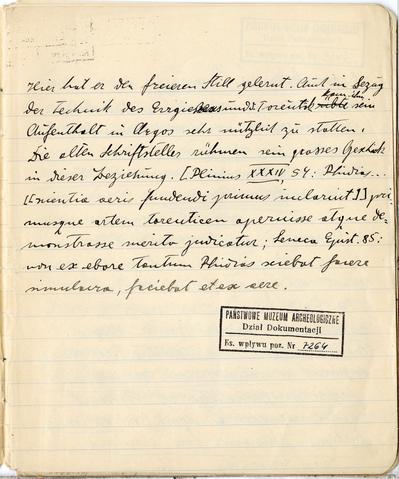 Hier hat er den freieren Still gelernt. Auch in Bezug
der Technik des Erzgiessens und Toreutik kam ihm sein
Aufenthalt in Argos sehr nützlich zu statten.
Die alten Schriftsteller rühmen sein grosses Geschick
in dieser Beziehung. [Plinius XXXIV 54: Phidias...
[[scientia aeris fundendi primus inclaruit]] pri-
musque artem toreuticen aperuisse atque de-
monstrasse merito judicatur; Seneca Epist. 85:
non ex ebore tantum Phidias sciebat facere
simulacra, faciebat et ex aere.
PAŃSTWOWE MUZEUM ARCHEOLOGICZNE
Dział Dokumentacji
Ks. wpływu poz. Nr 7264